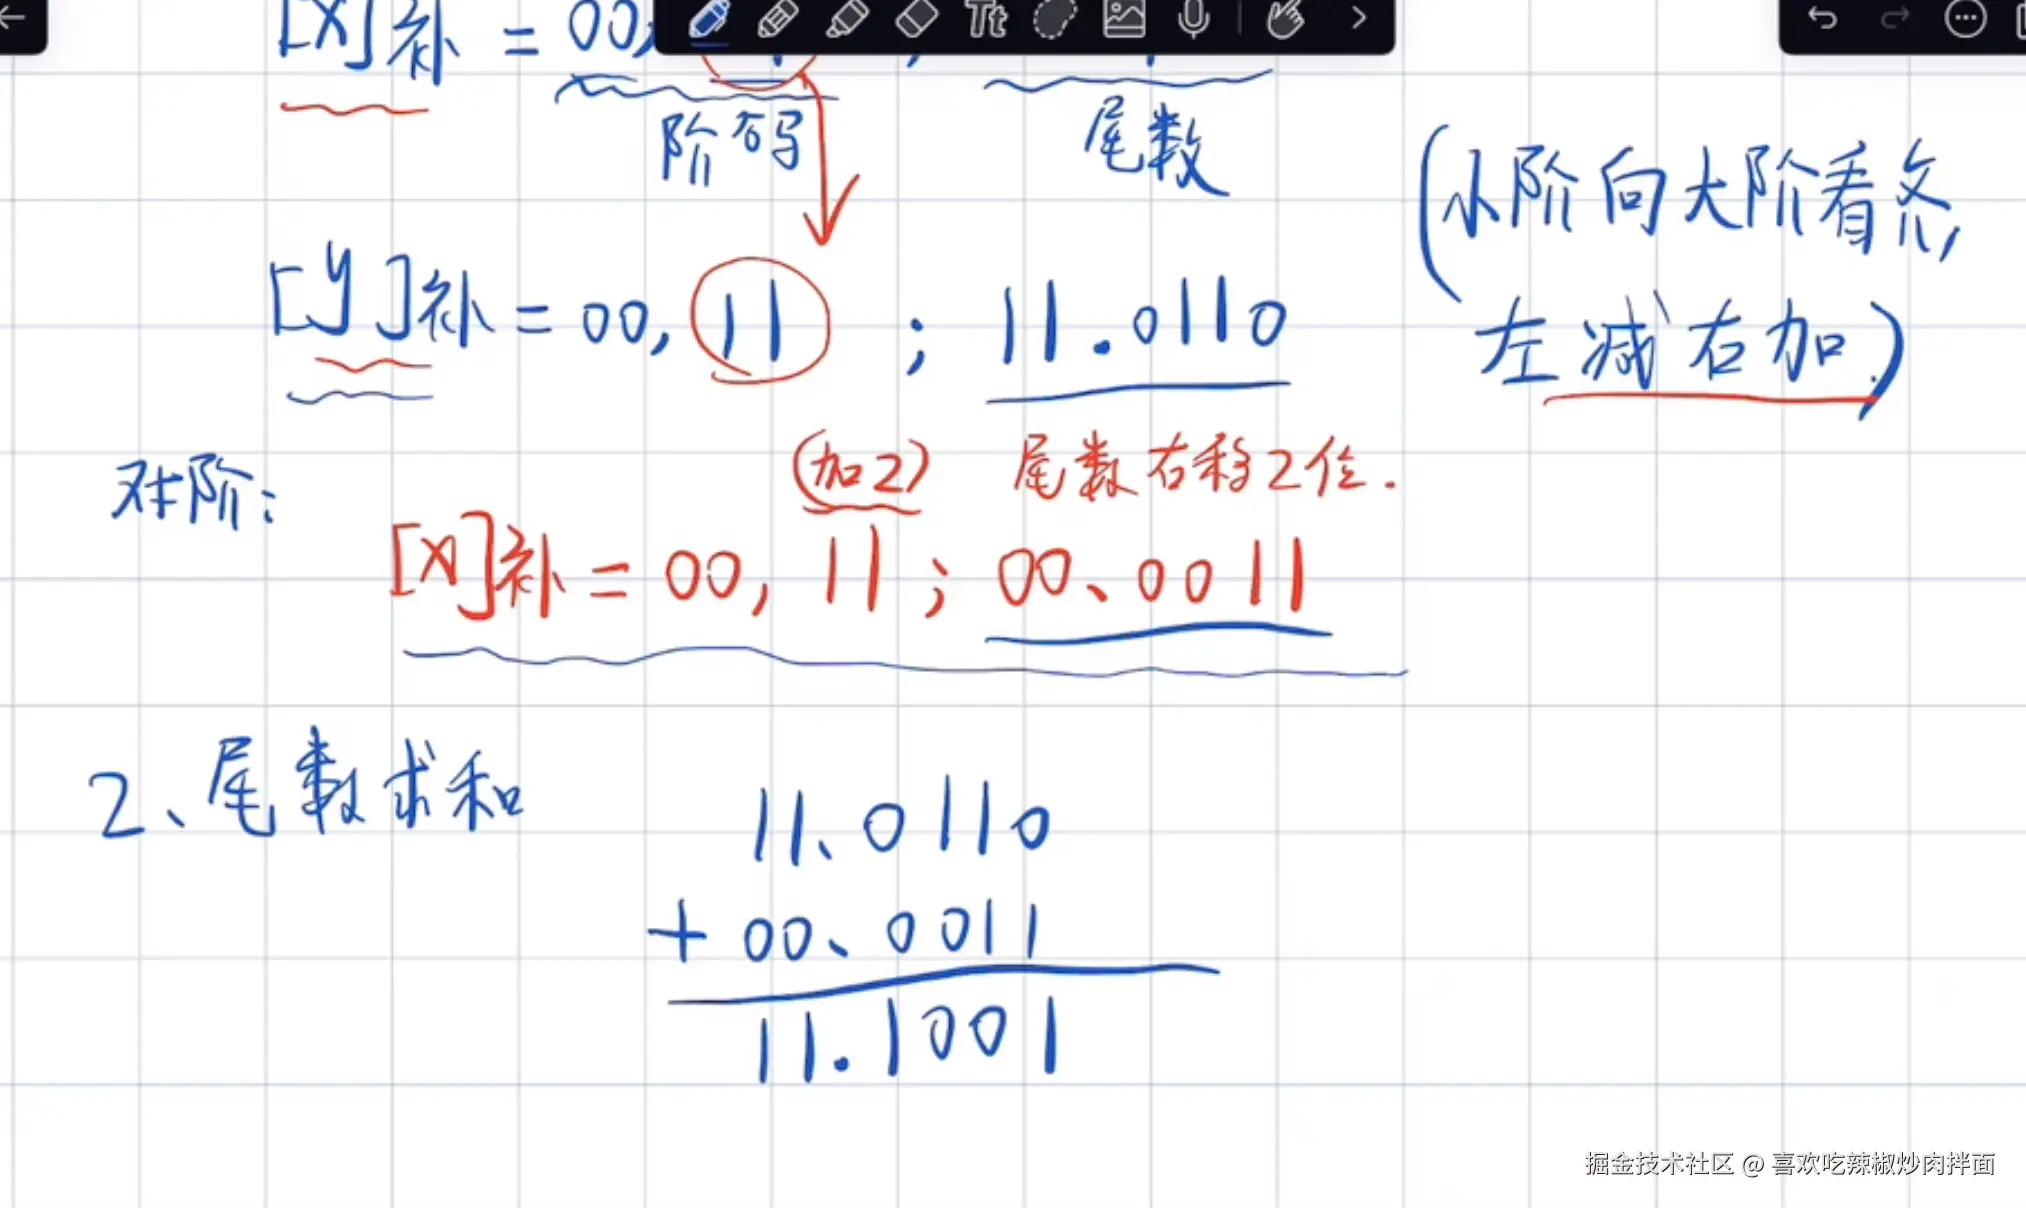 [X]补 = 00,
阶码
尾数
(小阶向大阶看齐,
左减右加.)
[y]补 = 00, 11 ; 11.0110
(加2) 尾数右移2位.
对阶:
[X]补 = 00, 11 ; 00.0011
2、尾数求和
11.0110
+ 00.0011
11.1001
Tt
掘金技术社区 @ 喜欢吃辣椒炒肉拌面